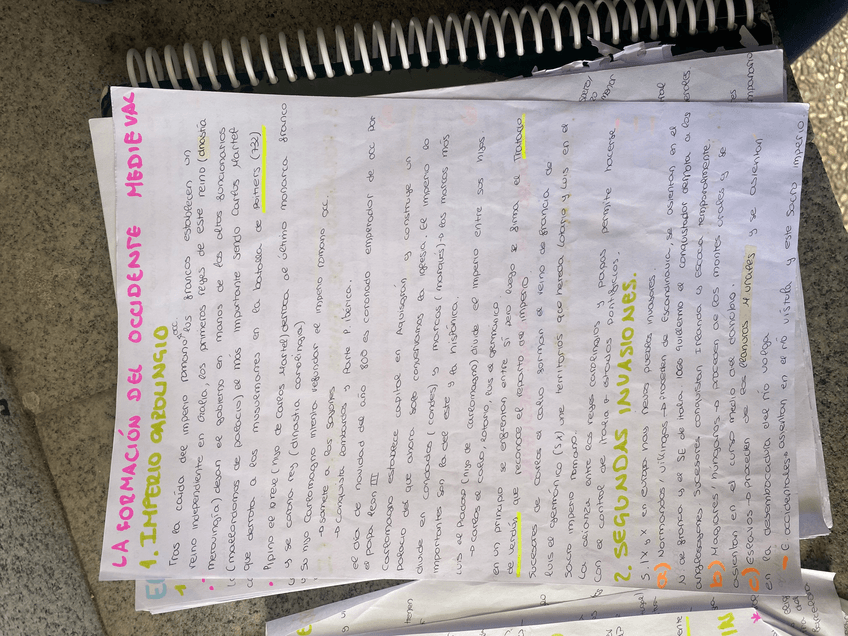 LA FORMACIÓN DEL OCCIDENTE MEDIEVAL
1. IMPERIO CAROLINGIO
Tras la caída del imperio romano occ. los francos establecen un
reino independiente en Galia, los primeros reyes de este reino (dinastía
merovingia) dejan el gobierno en manos de los altos funcionarios
(mallordomos de palacio) el más importante sendo Carlos Martel
que derrota a los musulmanes en la batalla de Poitiers (732)
Pipino el breve (hijo de Carlos Martel) derroca al último monarca franco
y se corona rey (dinastía carolingia)
Su hijo Carlomagno intenta refundar el imperio romano occ.
→ somete a los sajones
→ conquista lombardos y parte P. Ibérica.
el día de navidad del año 800 es coronado emperador de occ por
el papa León III
Carlomagno establece capital en Aquisgrán y construye un
palacio del que ahora solo conservamos la iglesia. El imperio lo
divide en condados (condes) y marcas (marqués) → las marcas más
importantes son la del este y la hispánica.
Luis el Piadoso (hijo de Carlomagno) divide el imperio entre sus hijos
→ Carlos el calvo, Lotario, Luis el germánico
en un principio se enfrentan entre sí pero luego se firma el Tratado
de Verdún que reconoce el reparto del imperio
Sucesores de Carlos el calvo forman el reino de Francia de
Luis el germánico (S.X) une territorios que hereda Lotario y Luis en el
Sacro imperio romano
La alianza entre los reyes carolingios y papas permite hacerse
con el control de Italia → estados pontificios.
2. SEGUNDAS INVASIONES.
S. IX y X en Europa hay nuevos pueblos invasores.
a) Normandos / vikingos → proceden de Escandinavia, se asientan en el
N de Francia y el SE de Italia. 1066 Guillermo el conquistador derrota a los
anglosajones. Sucesores conquistan Irlanda y Escocia temporalmente.
b) Magiares / húngaros → proceden de los montes urales y se
asientan en el curso medio del danubio.
c) Eslavos → proceden de las llanuras
en la desembocadura del río volga y se asientan
→ E occidentales → asientan en el río vístula y este sacro imperio